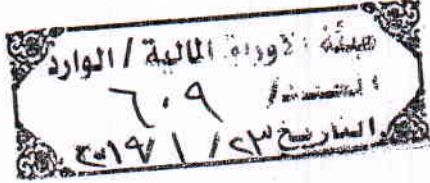 هيئة الاوراق المالية / الوارد
العدد / ٦٠٩
التاريخ ٢٣ / ١ / ٢٠١٩